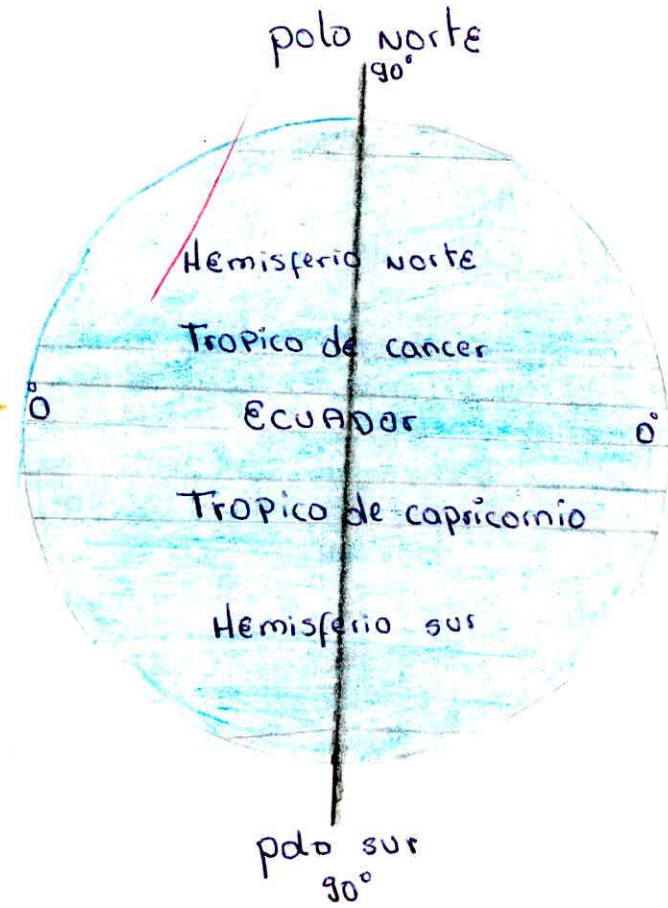 polo Norte
90°
Hemisferio Norte
Tropico de cancer
0° ECUADOR 0°
Tropico de capricornio
Hemisferio sur
polo sur
90°